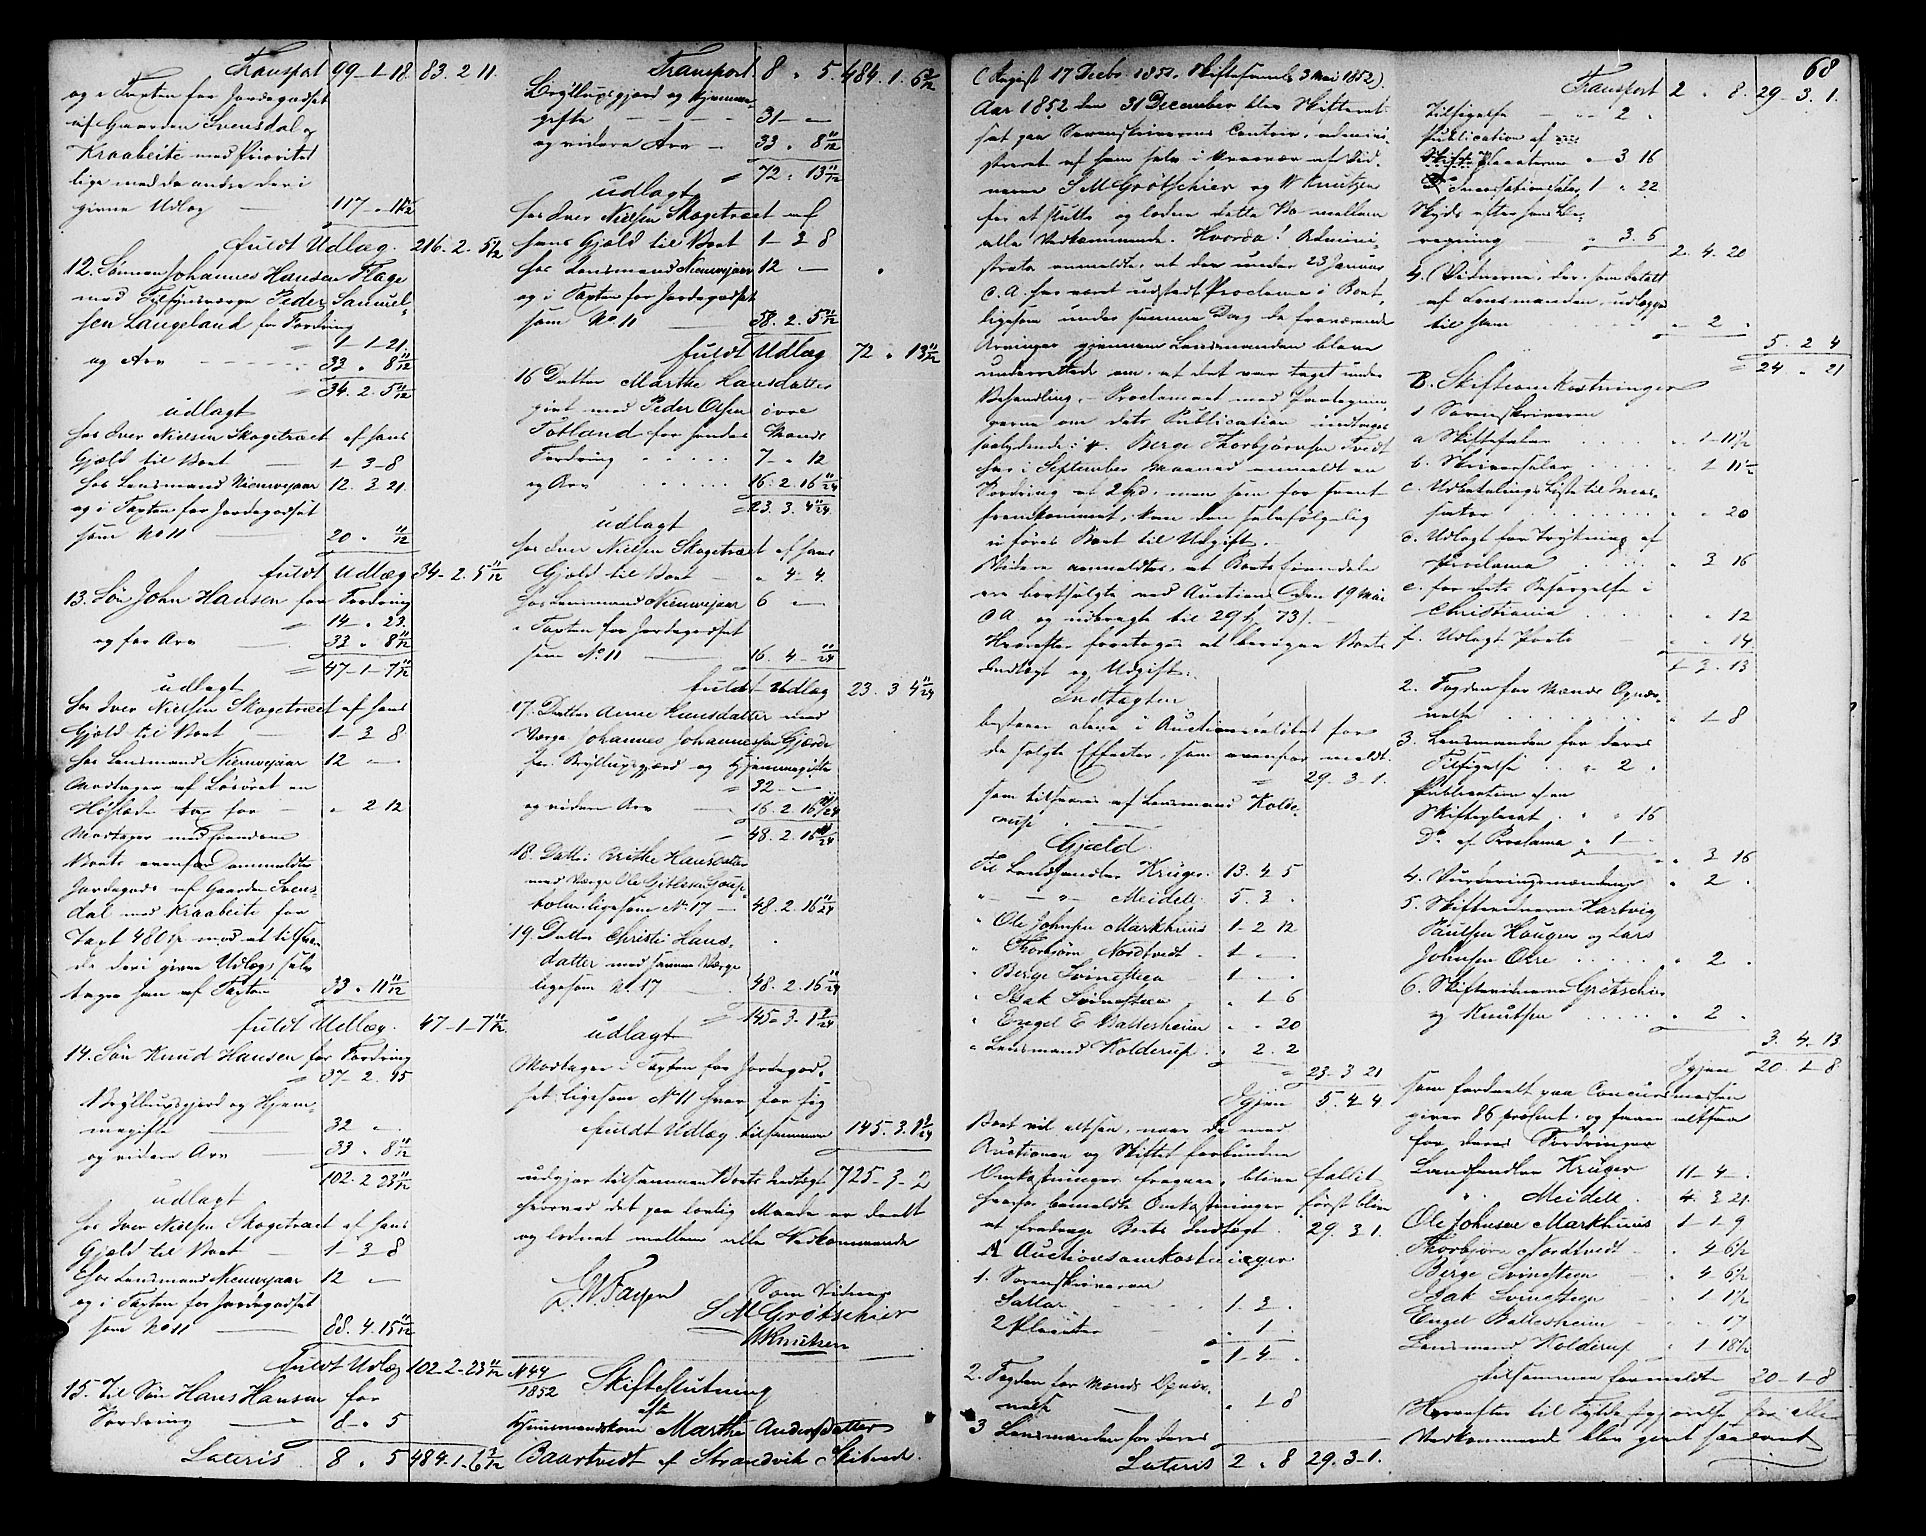 Transport 99-1-18. 83. 2 11.
og i Taxten for Jordegodset
af Gaarden Svensdal og
Kraabeite med Prioritet
lige med de andre deri
givne Udlæg 117 " 11 11/12
fuldt Udlæg. 216. 2. 5 11/12
12. Sønnen Johannes Hansen Flage
med Tilsynsværge Peder Samuel-
sen Langeland for Fordring
1-1-21.
og Arv 33 " 8 11/12
34. 2. 5 11/12
udlagt
hos Iver Nielsen Skogetræet af hans
Gjæld til Boet 1-3-8
hos Lensmand Nieuwejaar 12. 3 21.
og i Taxten for Jordegodset
som No 11 20 " 11/12
fuldt Udlæg 34-2. 5 11/12
13. Søn John Hansen for Fordring
14 " 23.
og for Arv 33 " 8 11/12
47-1-7 11/12
udlagt
hos Iver Nielsen Skogetræet af hans
Gjæld til Boet 1-3 8
hos Lensmand Nieuwejaar 12 "-
Modtager af Løsøret en
Høslæde tax for " 2 12
Modtager med
Boets ovenfor anmeldte
Jordegods af Gaarden Svens-
dal med Kraabeite for
Taxt 480 og med at tilsva-
re de deri givne Udlæg, selv
tager han af Taxten 33 " 11 11/12
fuldt Udlæg. 47-1-7 11/12
14. Søn Knud Hansen for Fordring
37-2. 15
Bryllupsgjerd og Hjem-
megifte 32 "
og videre Arv 33 " 8 11/12
102. 2 23 11/12
udlagt
hos Iver Nielsen Skogetræet af hans
Gjæld til Boet 1-3-8
hos Lensmand Nieuwejaar 12 "-
og i Taxten for Jordegodset
som No 11 88. 4. 15 11/12
fuldt Udlæg 102-2-23 11/12
15. Til Søn Hans Hansen for
Fordring 8 " 5
Lateris 8 " 5 484-1-6 7/12
Transport 8 " 5. 484. 1. 6 7/12
Bryllupsgjerd og Hjemme-
gifte 31-"-
og videre Arv 33 " 8 11/12
72 " 13 11/12
udlagt
hos Iver Nielsen Skogetræet af
hans Gjæld til Boet 1-3 8
hos Lensmand Nieuwejaar 12 "-
og i Taxten for Jordegodset
som No 11 58. 2. 5 11/12
fuldt Udlæg 72 " 13 11/12
16 Datter Marthe Hansdatter
givt med Peder Olsen øvre
Totland for hendes Mands
Fordring 7-" 12
og Arv 16. 2 16 11/24
23. 3. 4 11/24
udlagt
hos Iver Nielsen Skogetræet af hans
Gjæld til Boet " 4-4.
hos Lensmand Nieuwejaar 6 "-
i Taxten for Jordegodset
som No. 11 16. 4-11/24
fuldt Udlæg 23. 3 4 11/24
17. Datter Anne Hansdatter med
Værge Johannes Johannessen Gjærde
for Bryllupsgjerd og Hjemmegifte
32-"-
og videre Arv 16. 2 16 11/24
48. 2. 16 11/24
18. Datter Brithe Hansdatter
med Værge Ole Gitlesen
ligesom No. 17 48. 2. 16 11/24
19. Datter Christi Hans-
datter med samme Værge
ligesom No. 17 48. 2-16 11/24
145-3-1 9/24
udlagt
Modtager i Taxten for Jordegod-
set ligesom No 11 hver for sig
fuldt Udlæg tilsammen 145. 3. 1 9/24
udgjør tilsammen Boets Indtægt 725-3-2
hvorved det paa lovlig Maade er deelt
og lodnet mellem alle Vedkommende
Som Vidner
S M Grøtschier
W Knutzen
No 44/1852 Skifteslutning
efter
Huusmandskone Marthe Andersdatter
Baartvedt af Strandvik Skibred.
68
(Regist 17 Decbr. 1851. Skiftesaml. 3 Mai 1852)
Aar 1852 den 31 December blev Skifteret
sat paa Sorenskriverens Contoir, admini-
streret af ham selv i Overvær af Vid-
nerne S M Grøtschier og W Knutzen
for at slutte og lodne dette Bo mellem
alle Vedkommende. Hvorda! Admini-
strator anmeldte, at der under 23 Januar
d. A. har været udstedt Proclama i Boet,
ligesom under samme Dag de fraværende
Arvinger gjennem Lensmanden bleve
underrettede om, at det var taget under
Behandling. - Proclamaet med Paategnin-
gerne om dets Publication indtages
saalydende: Berge Thorbjørnsen Tvedt
har i September Maaned anmeldt en
Fordring af 2 Spd. men som for seent
fremkommet, kan den selvfølgelig
ei føres Boet til Udgift. -
Videre anmeldtes, at Boets Eiendele
ere bortsolgte ved Auction den 19 Mai
d A. og udbragte til 29 73
Herefter foretoges at beregne Boets
Indtægt og Udgift:
Indtægten
bestaaer alene i Auctionsqvalitet for
de solgte Effecter, som ovenfor meldt
29. 3-1.
som tilsvares af Lensmand Kolde-
rup.
Gjæld.
Til Landhandler Krüger. 13. 4 5
" - " - Meidell. 5. 3 "
" Ole Johnsen Markhuus 1-2 12
" Thorbjørn Nordtvedt 1 "-
" Berge Svinesteen 1 "-
" Isak Svinesteen " 1-6
" Engel E Baldesheim " " 20
" Lensmand Kolderup. " 2. 2
23-3 21
Igjen 5. 4 4
Boet vil altsaa, naar de med
Auctionen og Skiftet forbundne
Omkostninger fragaaer, blive fallit
hvorfor bemeldte Omkostninger først blive
at fradrage Boets Indtægt 29. 3 1.
A Auctionsomkostninger
1. Sorenskriveren
Sallar. 1. 3.
2 Placater " 1.
1-4-
2. Fogden for Mands Opnæv-
nelse " 1-8
3 Lensmanden for deres
Lateris 2 " 8 29. 3-1.
Transport 2 " 8. 29-3. 1.
Tilsigelse " 2 "
Publication af
Skifte Placaterne " 3 16
Do Incassationssalær 1 " 22
Skyds efter hans Be-
regning " 3. 6
2. 4. 20
4. Vidnerne, der som betalt
af Lensmanden, udlægges
til ham " 2 "
5. 2 4
24 " 21
B. Skifteomkostninger
1 Sorenskriveren
a Skiftesalær " 1-11 1/2
b. Skriversalær " 1 11 1/2
c. Udbetalings Liste til Incas-
sator " " 20
d. Udlagt for Trykning af
Proclama " 3 16
e. for dets Besørgelse i
Christiania " " 12
f. Udlagt Porto " " 14
1 3. 13
2. Fogden for Mands Opnæv-
nelse " 1-8
3. Lensmanden for deres
Tilsigelse " 2 "
Publication af en
Skifteplacat " " 16
Do af Proclama " 1-
" 3 16
4. Vurderingsmændene " 2 "
5. Skiftevidnerne Hartvig
Paulsen Haugen og Lars
Johnsen Øvre " 2 "
6. Skiftevidnerne Grøtschier
og Knutzen " 2 "
3. 4-13
Igjen 20-1-8
som fordeelt paa Concursmassen
giver 86 procent. og faaer altsaa
for deres Fordringer
Landhandler Krüger 11-4-
" Meidell. 4. 3 21.
Ole Johnsen Markhuus 1-1-9
Thorbjørn Nordtvedt " 4 6 1/2
Berge Svinesteen " 4-6 1/2
Isak Svinesteen " 1 1 1/2
Engel Baldesheim " " 17
Lensmand Kolderup " 1 18 1/2
tilsammen formeldte 20-1-8
Herefter til Fyldestgjørelse for alle
Vedkommende blev givet saadant